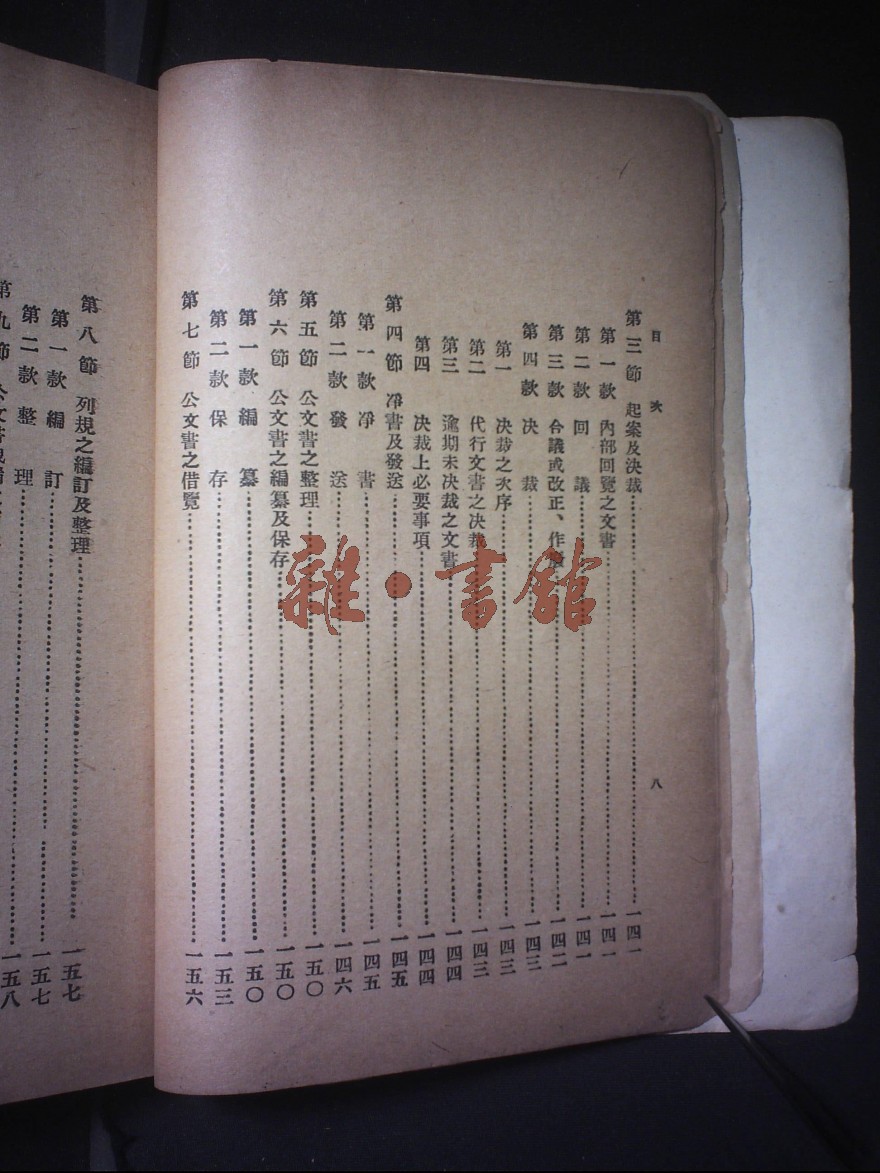 目次 八
第三節 起案及決裁……一四一
第一款 內部回覽之文書……一四一
第二款 回議……一四一
第三款 合議或改正、作……一四二
第四款 決裁……一四三
第一 決裁之次序……一四三
第二 代行文書之決裁……一四三
第三 逾期未決裁之文書……一四四
第四 決裁上必要事項……一四四
第四節 淨書及發送……一四五
第一款 淨書……一四五
第二款 發送……一四六
第五節 公文書之整理……一五〇
第六節 公文書之編纂及保存……一五〇
第一款 編纂……一五〇
第二款 保存……一五三
第七節 公文書之借覽……一五六
第八節 列規之編訂及整理……一五七
第一款 編訂……一五七
第二款 整理……一五八
第九節 公文書
雜·書館